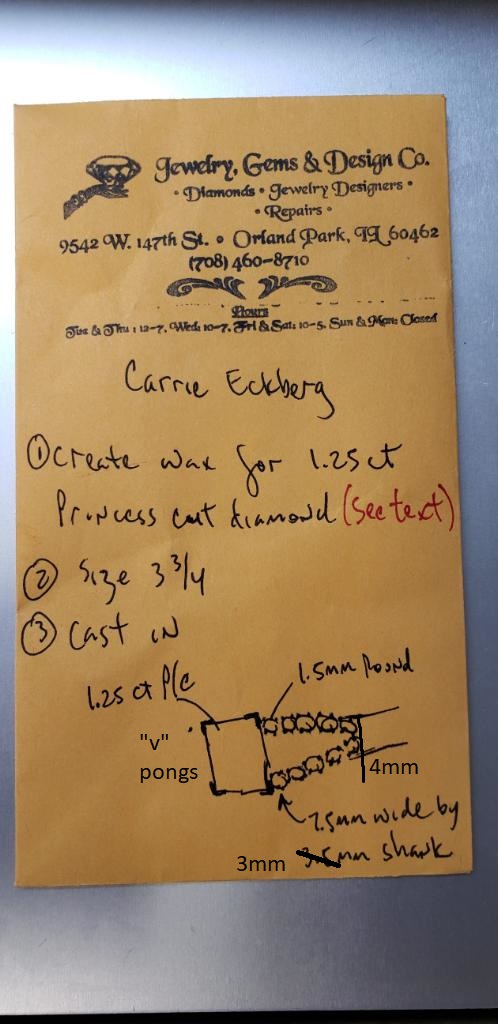 Jewelry, Gems & Design Co.
· Diamonds · Jewelry Designers ·
· Repairs ·
9542 W. 147th St. • Orland Park, IL 60462
(708) 460-8710
Hours
Tue & Thu : 12-7, Wed: 10-7, Fri & Sat: 10-5, Sun & Mon: Closed
Carrie Eckberg
① Create wax for 1.25 ct
Princess cut diamond (see text)
② Size 3 3/4
③ Cast in
1.25 ct P/c
1.5mm Round
"v"
pongs
4mm
1.5mm wide by
3mm 3.5mm shank